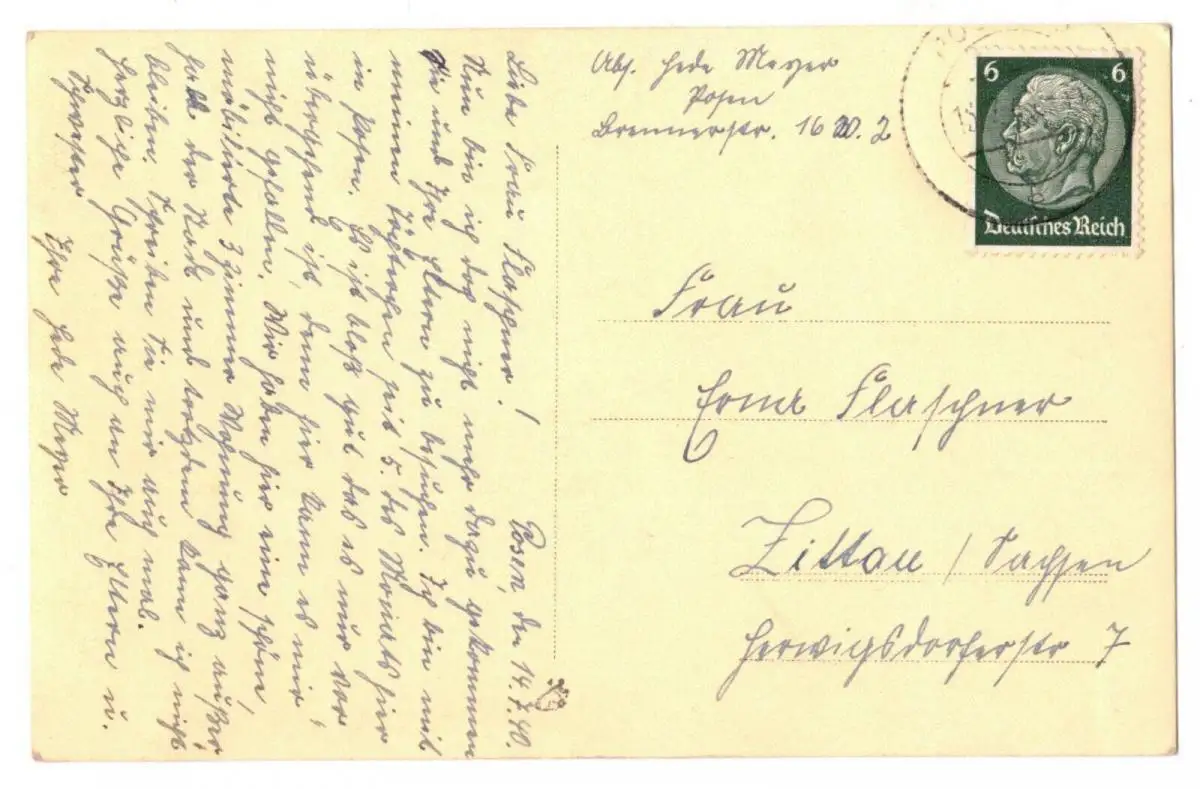 Posen, den 14.7.40.
Liebe Frau Flaschner!
Nun bin ich doch nicht mehr dazu gekommen
Sie und Ihre Eltern zu besuchen. Ich bin mit
meinem Töchterchen seit 5. des Monats hier
in Posen. Es ist bloß gut das es nur vor¬
übergehend ist, denn hier kann es mir
nicht gefallen. Wir haben hier eine schöne,
möblierte 3 Zimmer Wohnung ganz außer¬
halb der Stadt und trotzdem kann ich nicht
bleiben. Schreiben Sie mir auch mal.
Herzliche Grüße auch an Ihre Eltern u.
Schwester
Ihre Hede Meyer
Abs. Hede Meyer
Posen
Brennerstr. 16 W. 2
6 6
Deutsches Reich
Frau
Erna Flaschner
Zittau / Sachsen
Herwigsdorferstr 7